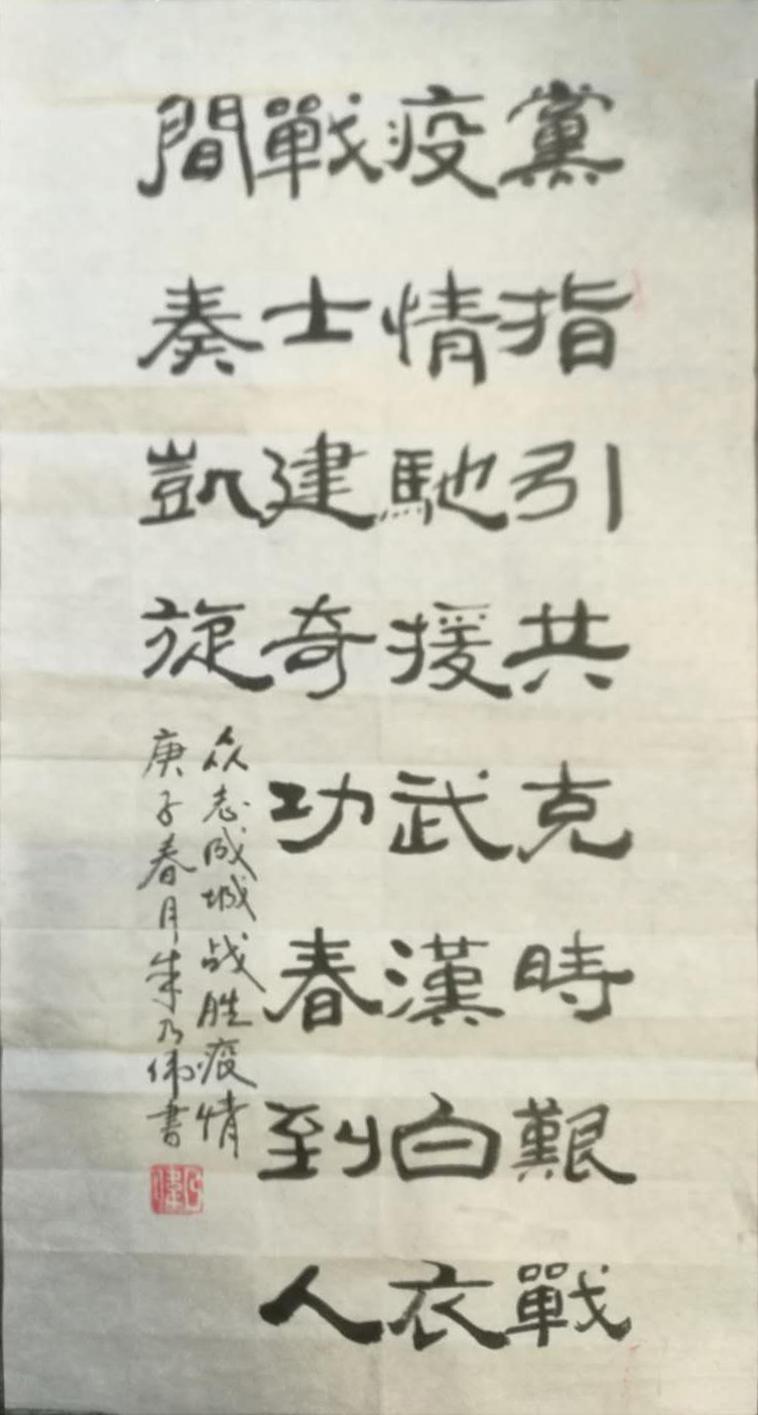 黨指引共克時艱戰
疫情馳援武漢白衣
戰士建奇功春到人
間奏凱旋
众志成城战胜疫情
庚子春月朱乃伟書